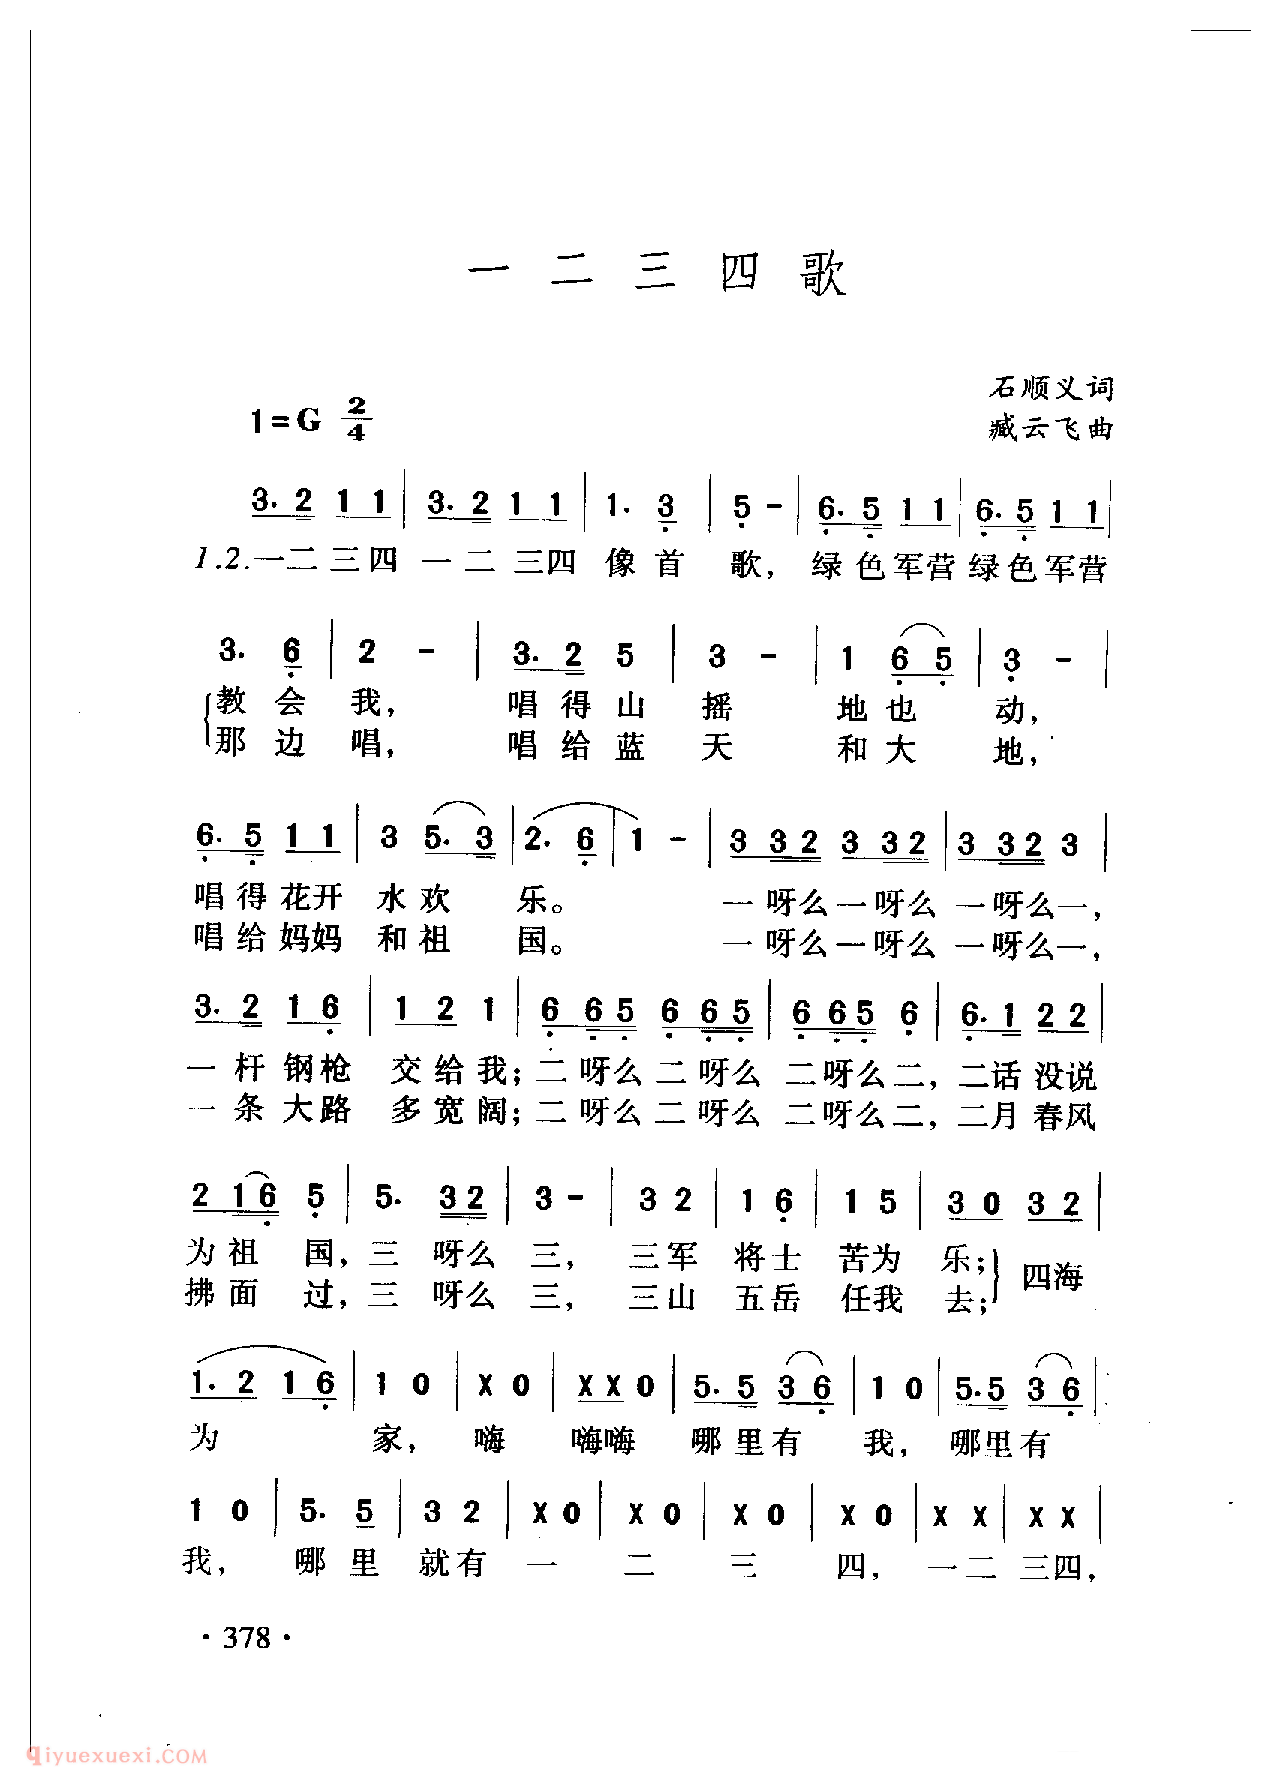 一二三四歌
石顺义词
1=G 2/4
臧云飞曲
3. 2 1 1 | 3. 2 1 1 | 1. 3 | 5 - | 6. 5 1 1 | 6. 5 1 1 |
1.2.一二三四 一二三四 像首 歌，绿色军营绿色军营
3. 6 | 2 - | 3. 2 5 | 3 - | 1 6 5 | 3 - |
教会我，唱得山摇 地也 动，
那边唱，唱给蓝天 和大 地，
6. 5 1 1 | 3 5. 3 | 2. 6 | 1 - | 3 3 2 3 3 2 | 3 3 2 3 |
唱得花开 水欢 乐。 一呀么一呀么 一呀么一，
唱给妈妈 和祖 国。 一呀么一呀么 一呀么一，
3. 2 1 6 | 1 2 1 | 6 6 5 6 6 5 | 6 6 5 6 | 6. 1 2 2 |
一杆钢枪 交给我；二呀么二呀么 二呀么二，二话没说
一条大路 多宽阔；二呀么二呀么 二呀么二，二月春风
2 1 6 5 | 5. 3 2 | 3 - | 3 2 | 1 6 | 1 5 | 3 0 3 2 |
为祖 国，三 呀么 三， 三军 将士 苦为 乐； 四海
拂面 过，三 呀么 三， 三山 五岳 任我 去；
1. 2 1 6 | 1 0 | X 0 | X X 0 | 5. 5 3 6 | 1 0 | 5. 5 3 6 |
为 家， 嗨 嗨嗨 哪里有 我， 哪里有
1 0 | 5. 5 | 3 2 | X 0 | X 0 | X 0 | X 0 | X X | X X |
我， 哪里 就有 一 二 三 四， 一二 三四，
·378·
qiyuexuexi.COM